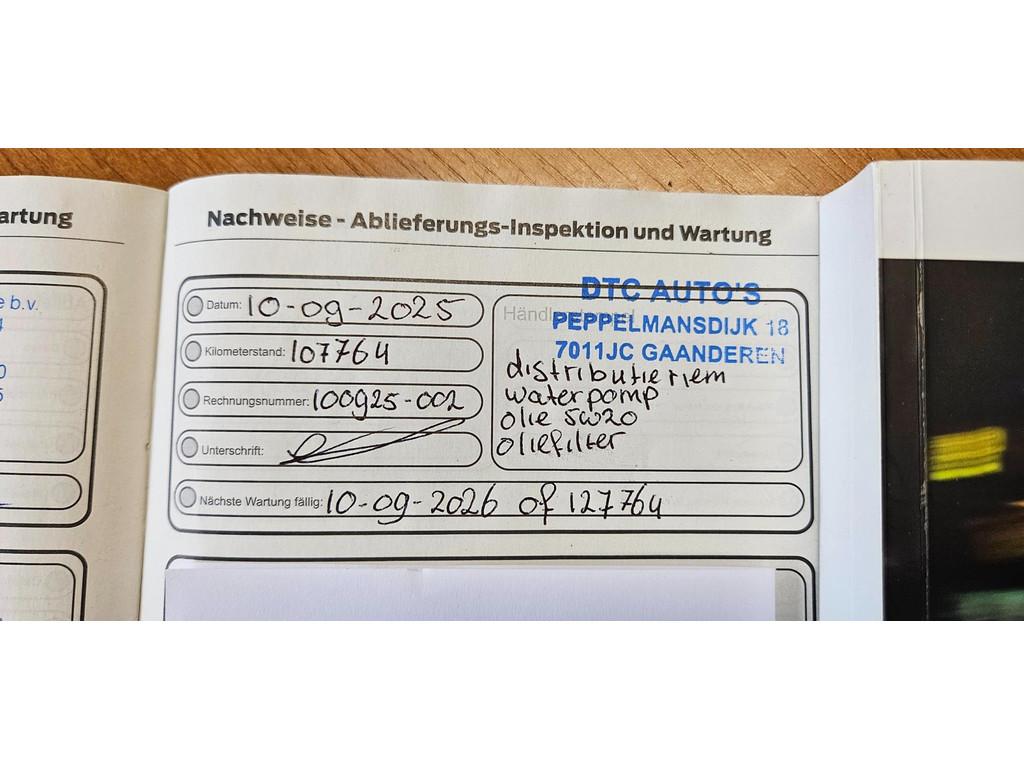 artung
e b.v.
0
5
Nachweise - Ablieferungs-Inspektion und Wartung
Datum: 10-09-2025
Kilometerstand: 107764
Rechnungsnummer: 100925-002
Unterschrift:
DTC AUTO'S
PEPPELMANSDIJK 18
7011JC GAANDEREN
distributieriem
waterpomp
olie 5w20
oliefilter
Nächste Wartung fällig: 10-09-2026 of 127764